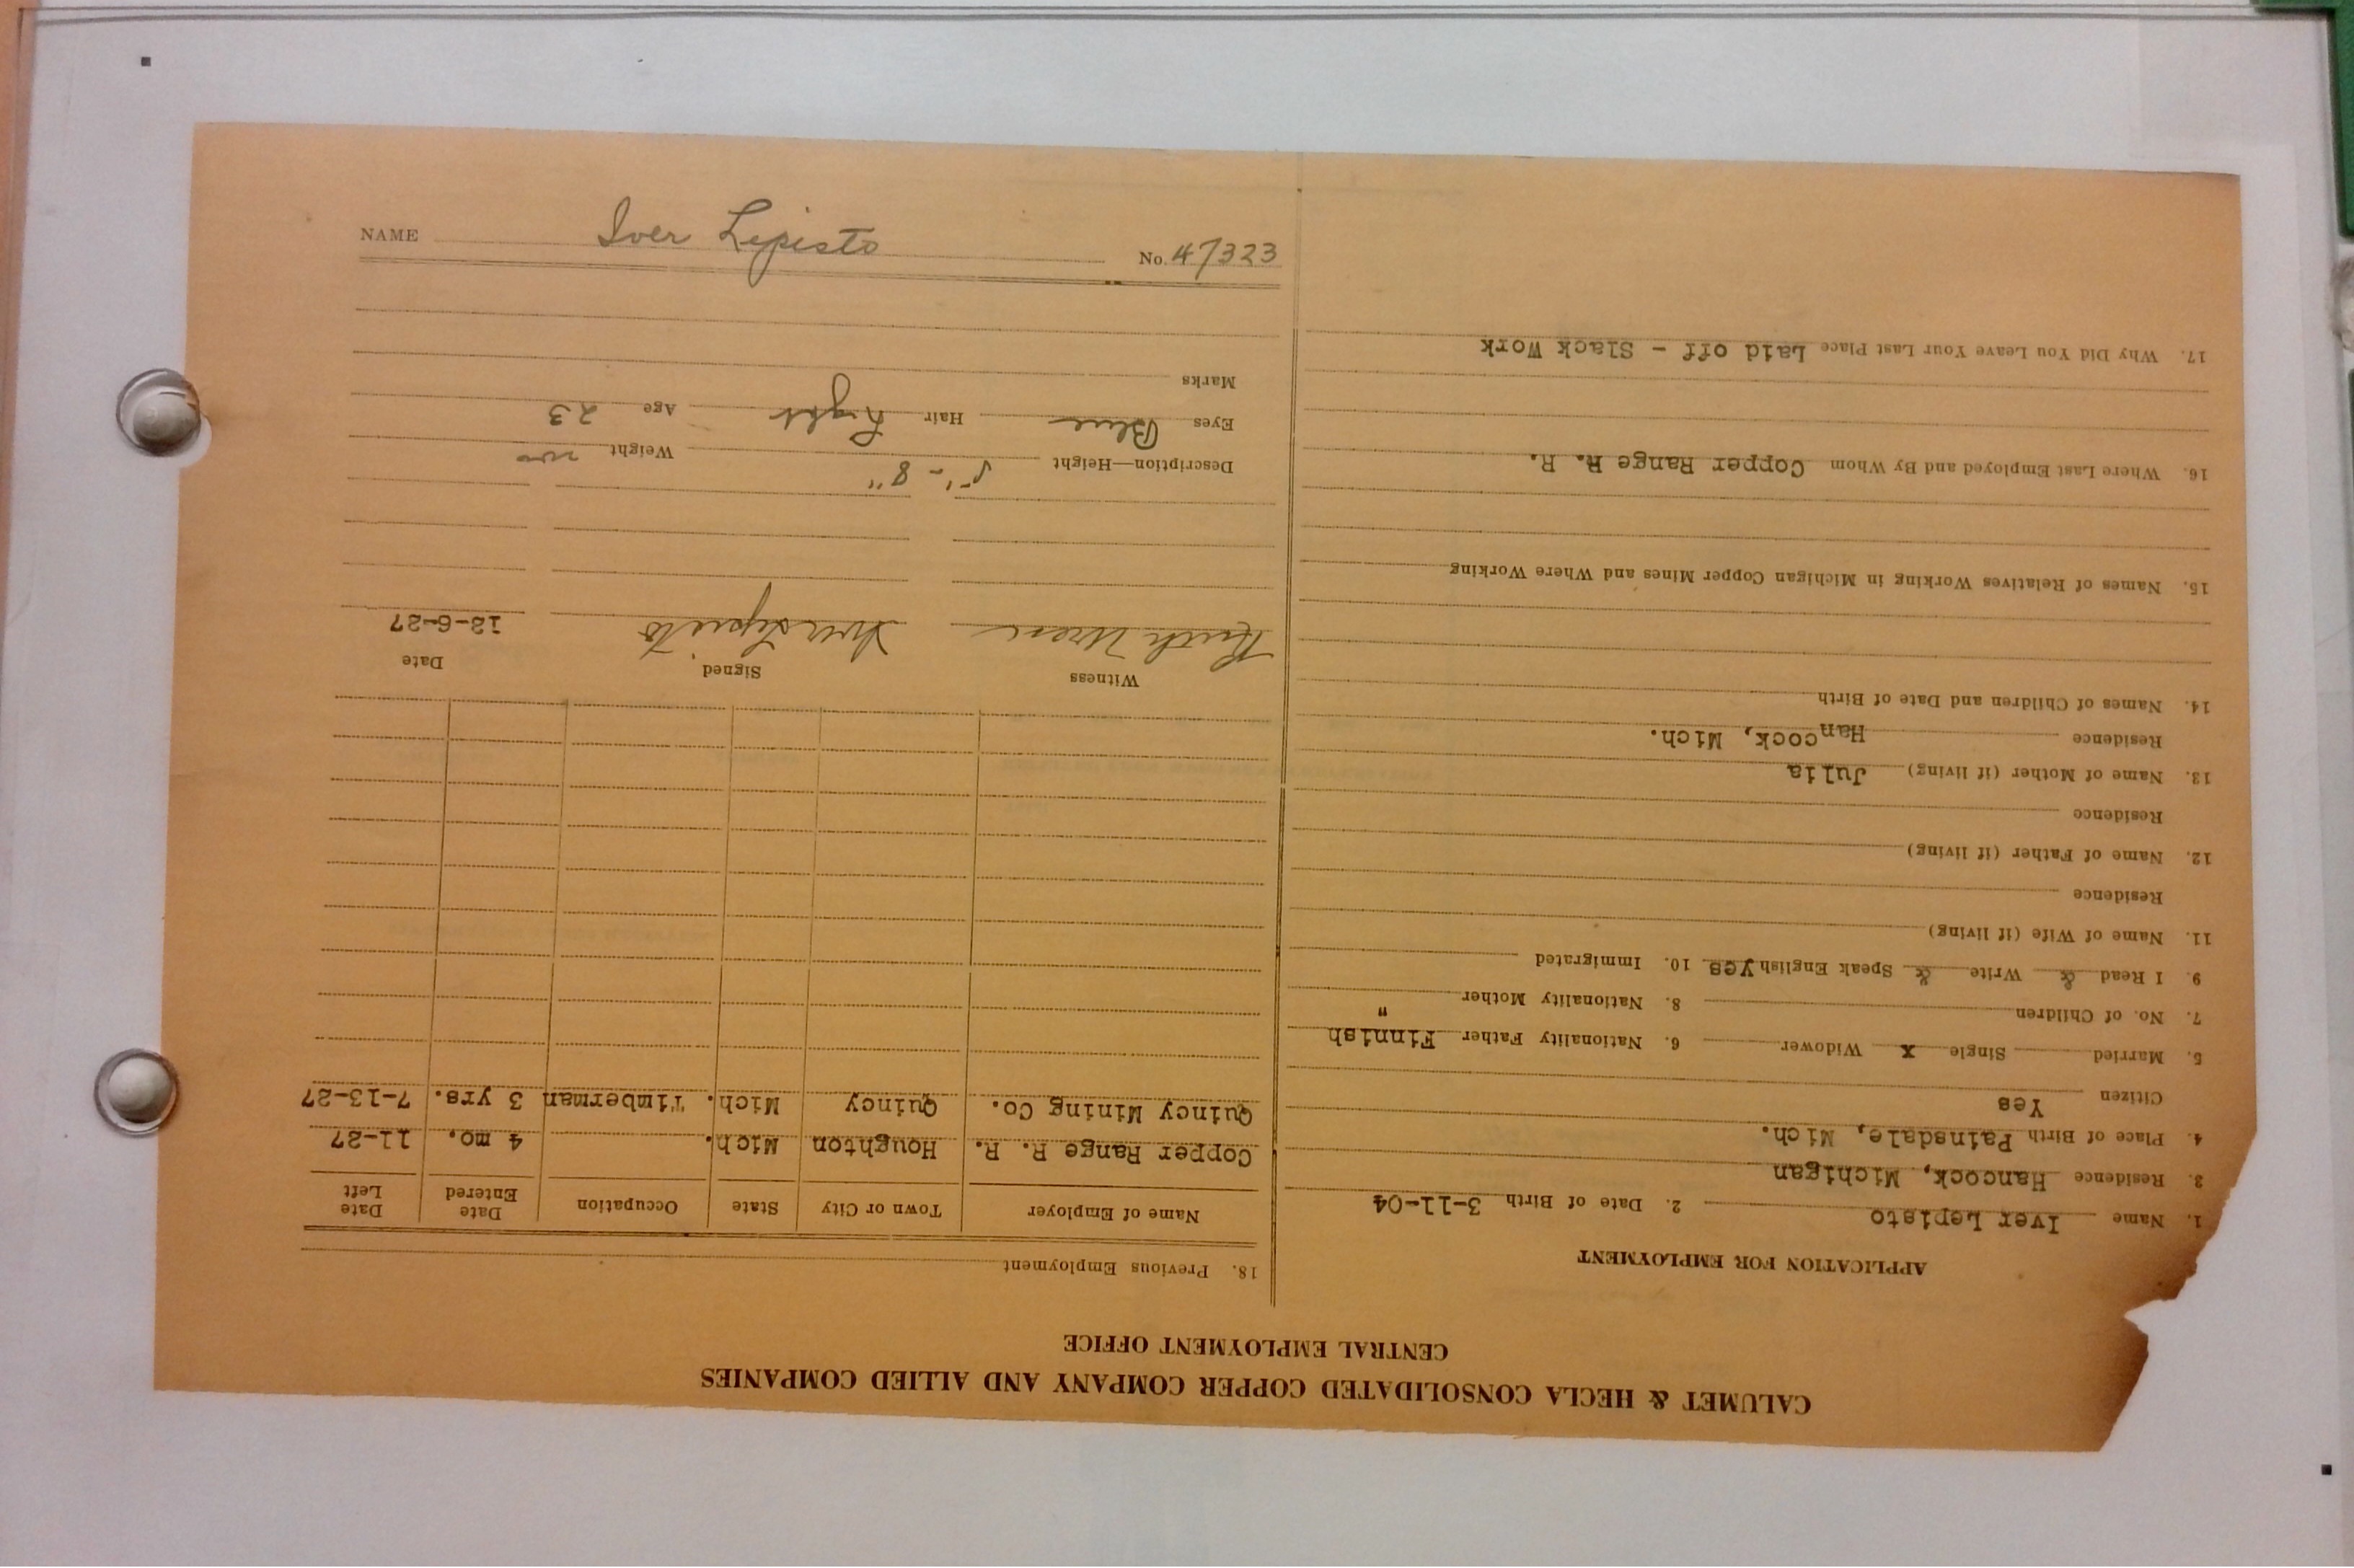 CALUMET & HECLA CONSOLIDATED COPPER COMPANY AND ALLIED COMPANIES
CENTRAL EMPLOYMENT OFFICE
APPLICATION FOR EMPLOYMENT
1. Name Iver Lepisto 2. Date of Birth 3-11-04
3. Residence Hancock, Michigan
4. Place of Birth Painsdale, Mich.
Citizen Yes
5. Married Single x Widower 6. Nationality Father Finnish
7. No. of Children 8. Nationality Mother "
9. I Read & Write & Speak English yes 10. Immigrated
11. Name of Wife (if living)
Residence
12. Name of Father (if living)
Residence
13. Name of Mother (if living) Julia
Residence Hancock, Mich.
14. Names of Children and Date of Birth
15. Names of Relatives Working in Michigan Copper Mines and Where Working
16. Where Last Employed and By Whom Copper Range R. R.
17. Why Did You Leave Your Last Place Laid off - Slack Work
18. Previous Employment
Name of Employer Town or City State Occupation Date Entered Date Left
Copper Range R. R. Houghton Mich. 4 mo. 11-27
Quincy Mining Co. Quincy Mich. Timberman 3 yrs. 7-13-27
Witness Signed Date
Iver Lepisto 12-6-27
Description—Height 5'-8" Weight
Eyes Blue Hair Light Age 23
Marks
NAME Iver Lepisto No. 47323